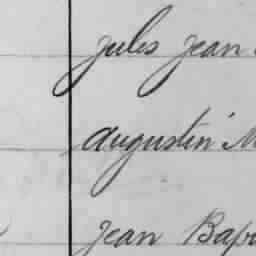 Jules Jean
Augustin M
Jean Bap